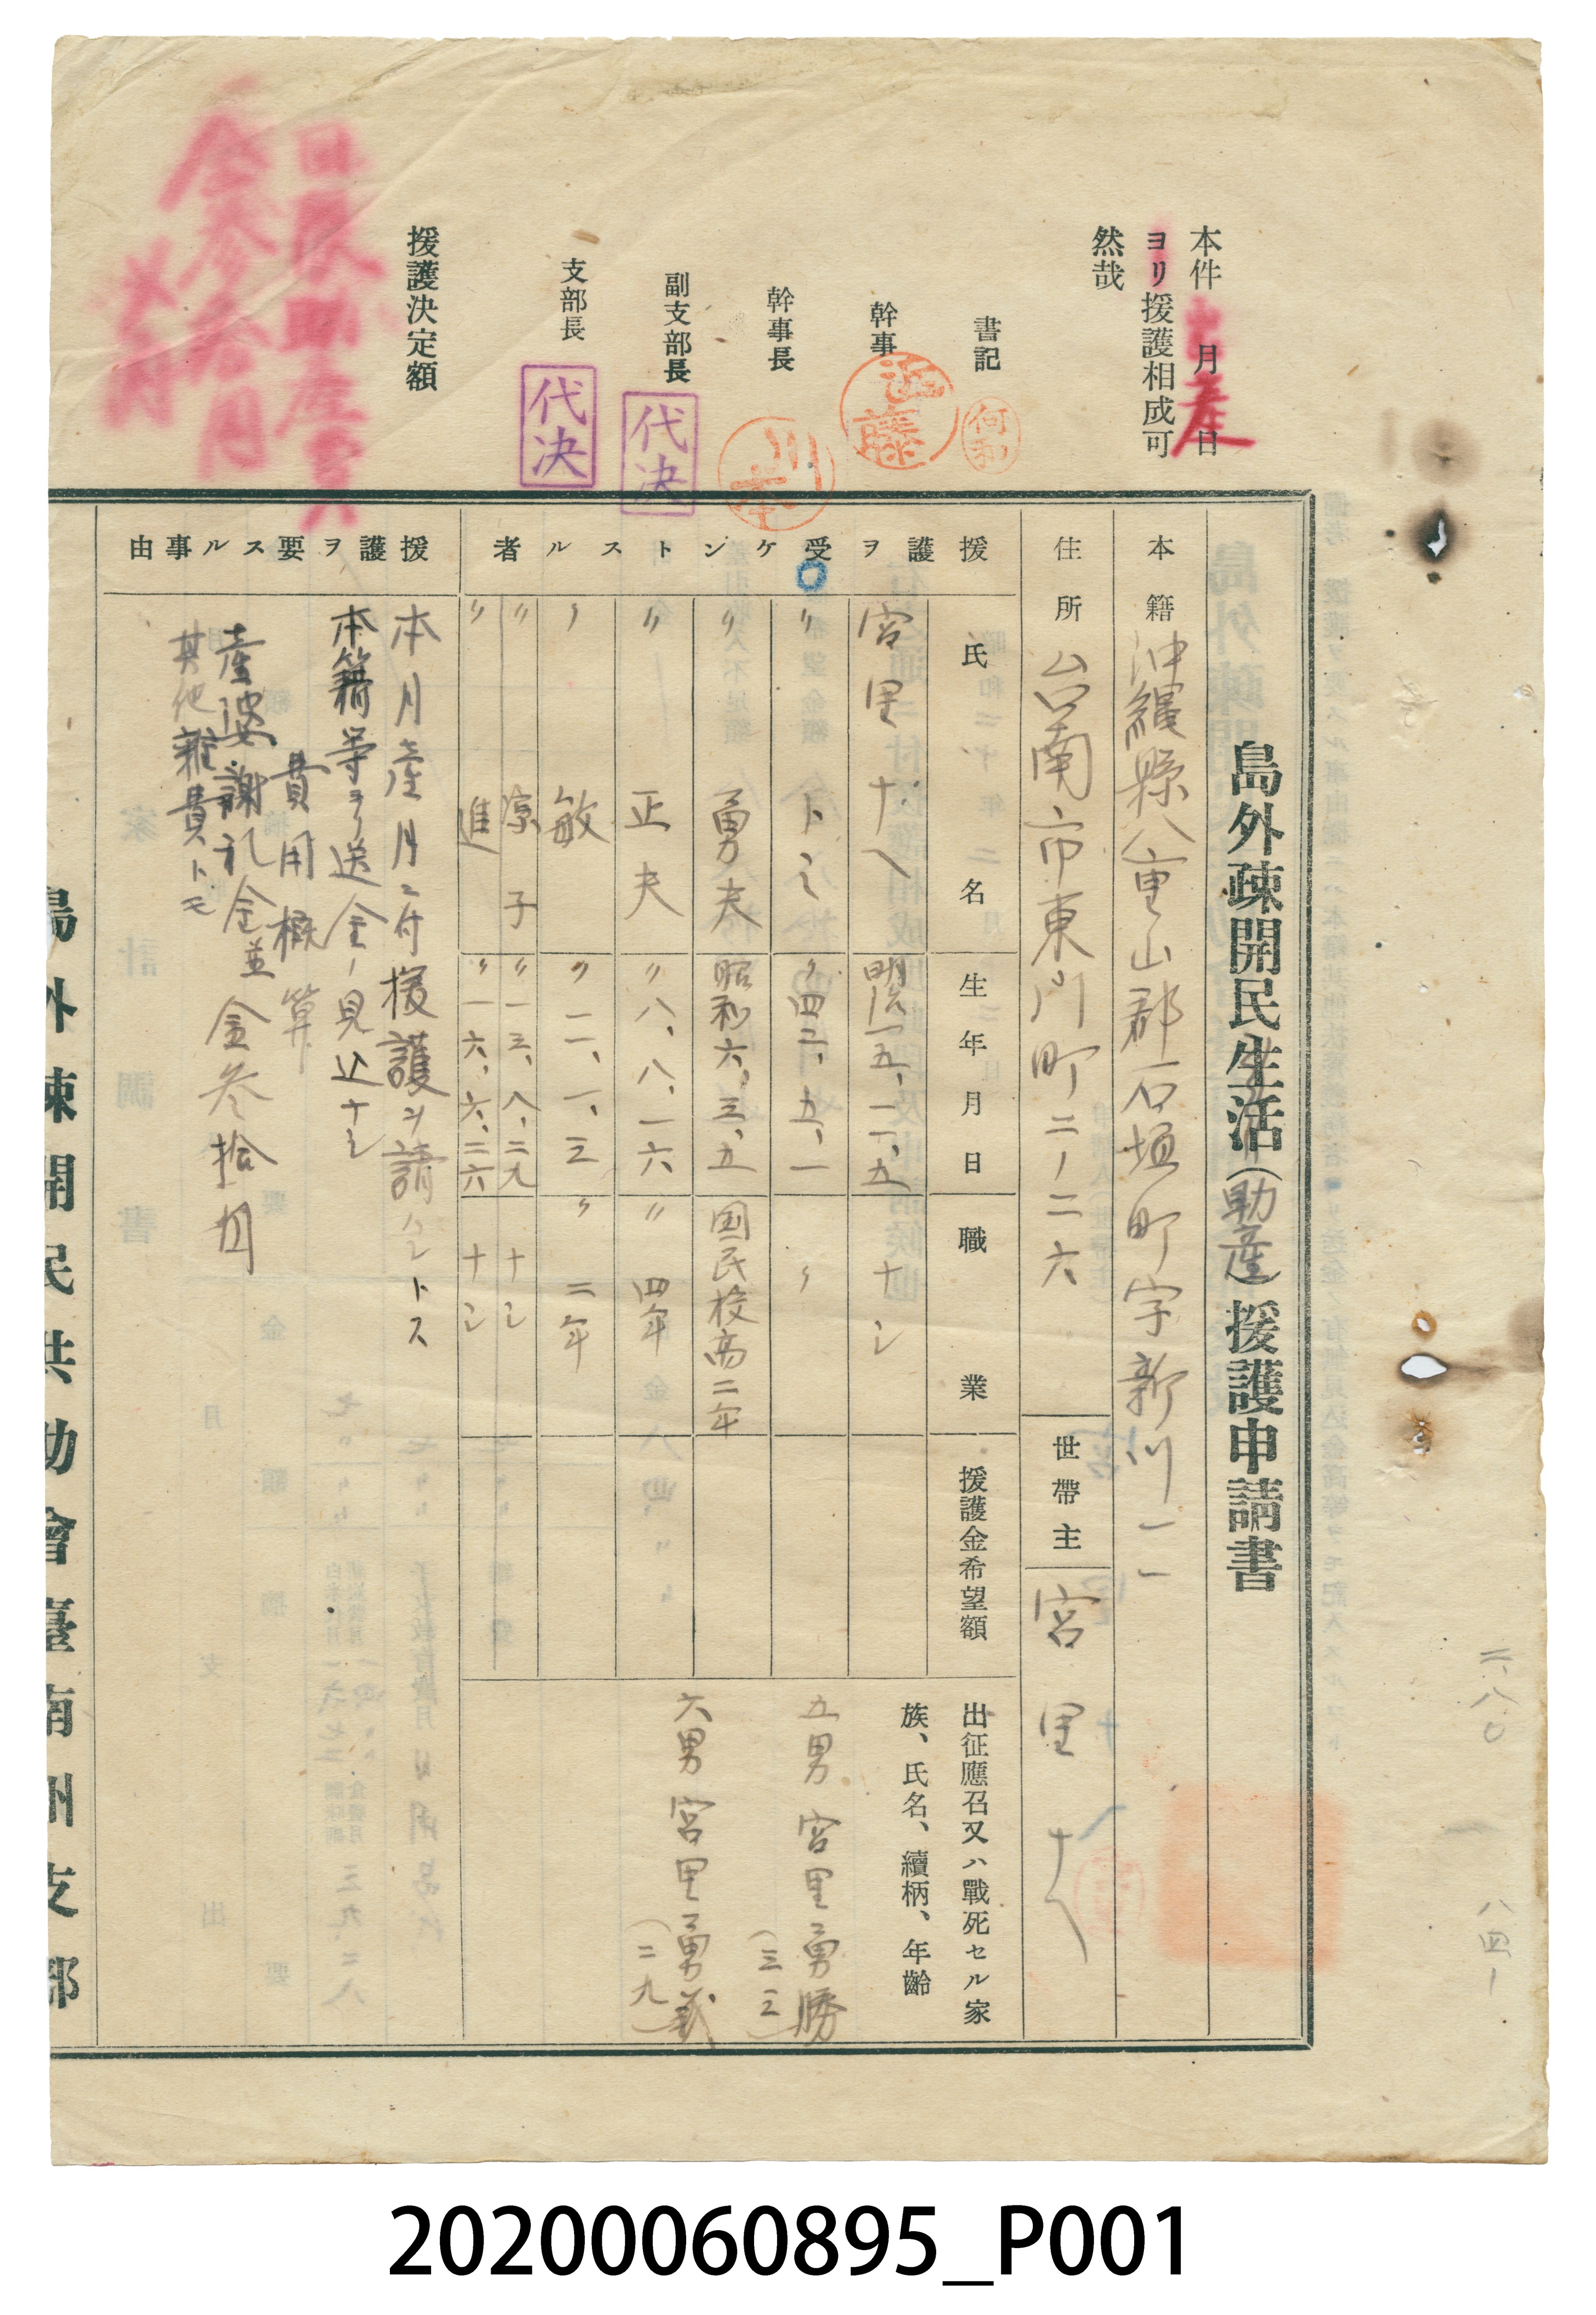 島外疎開民生活(助産)援護申請書
本件 月産日
ヨリ援護相成可
然哉
書記
幹事
近藤
幹事長
副支部長
代決
支部長
代決
援護決定額
本籍 沖繩縣八重山郡石垣町字新川一一
住所 台南市東門町二ノ二六
世帶主 宮里ナヘ
援護ヲ受ケントスル者
氏名 生年月日 職業 援護金希望額
出征應召又ハ戰死セル家
族、氏名、續柄、年齡
宮里ナヘ 明治一五、一一、五 ナシ
〃 トミ 〃四二、五、一 〃
五男 宮里勇勝
(三三)
〃 勇夫 昭和六、三、五 国民校高二年
六男 宮里勇義
(二九)
〃 正夫 〃八、八、一六 〃 四年
〃 敏 〃一一、一、三 〃 二年
〃 涼子 〃一三、八、二九 ナシ
〃 進 〃一六、六、二六 ナシ
援護ヲ要スル事由
本月産月ニ付援護ヲ請ハントス
本籍等ヨリ送金ノ見込ナシ
費用概算
産婆謝礼金並
其他雜費トモ
金参拾円
島外疎開民共助會臺南州支部
二、八〇
八四ー
20200060895_P001